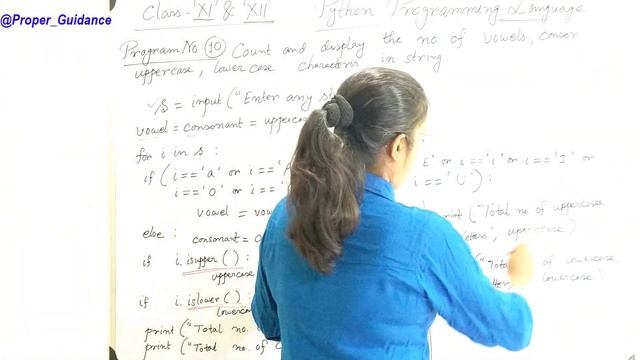 @Proper_Guidance
Class-'XI' & 'XII' Python Programming Language
Program No. (10) Count and display the no of vowels, conson
uppercase, lowercase characters in string.
s = input ("Enter any st
vowel = consonant = uppercas
for i in s :
if (i=='a' or i== E' or i=='i' or i=='I' or
i=='o' or i== i=='U') :
vowel = vow
else : consonant = c
if i.isupper () :
uppercase
if i.islower () :
lowerca
print ("Total no.
print ("Total no. of
print ("Total no of uppercase
letters", uppercase)
("Total of lowercase
lowercase)